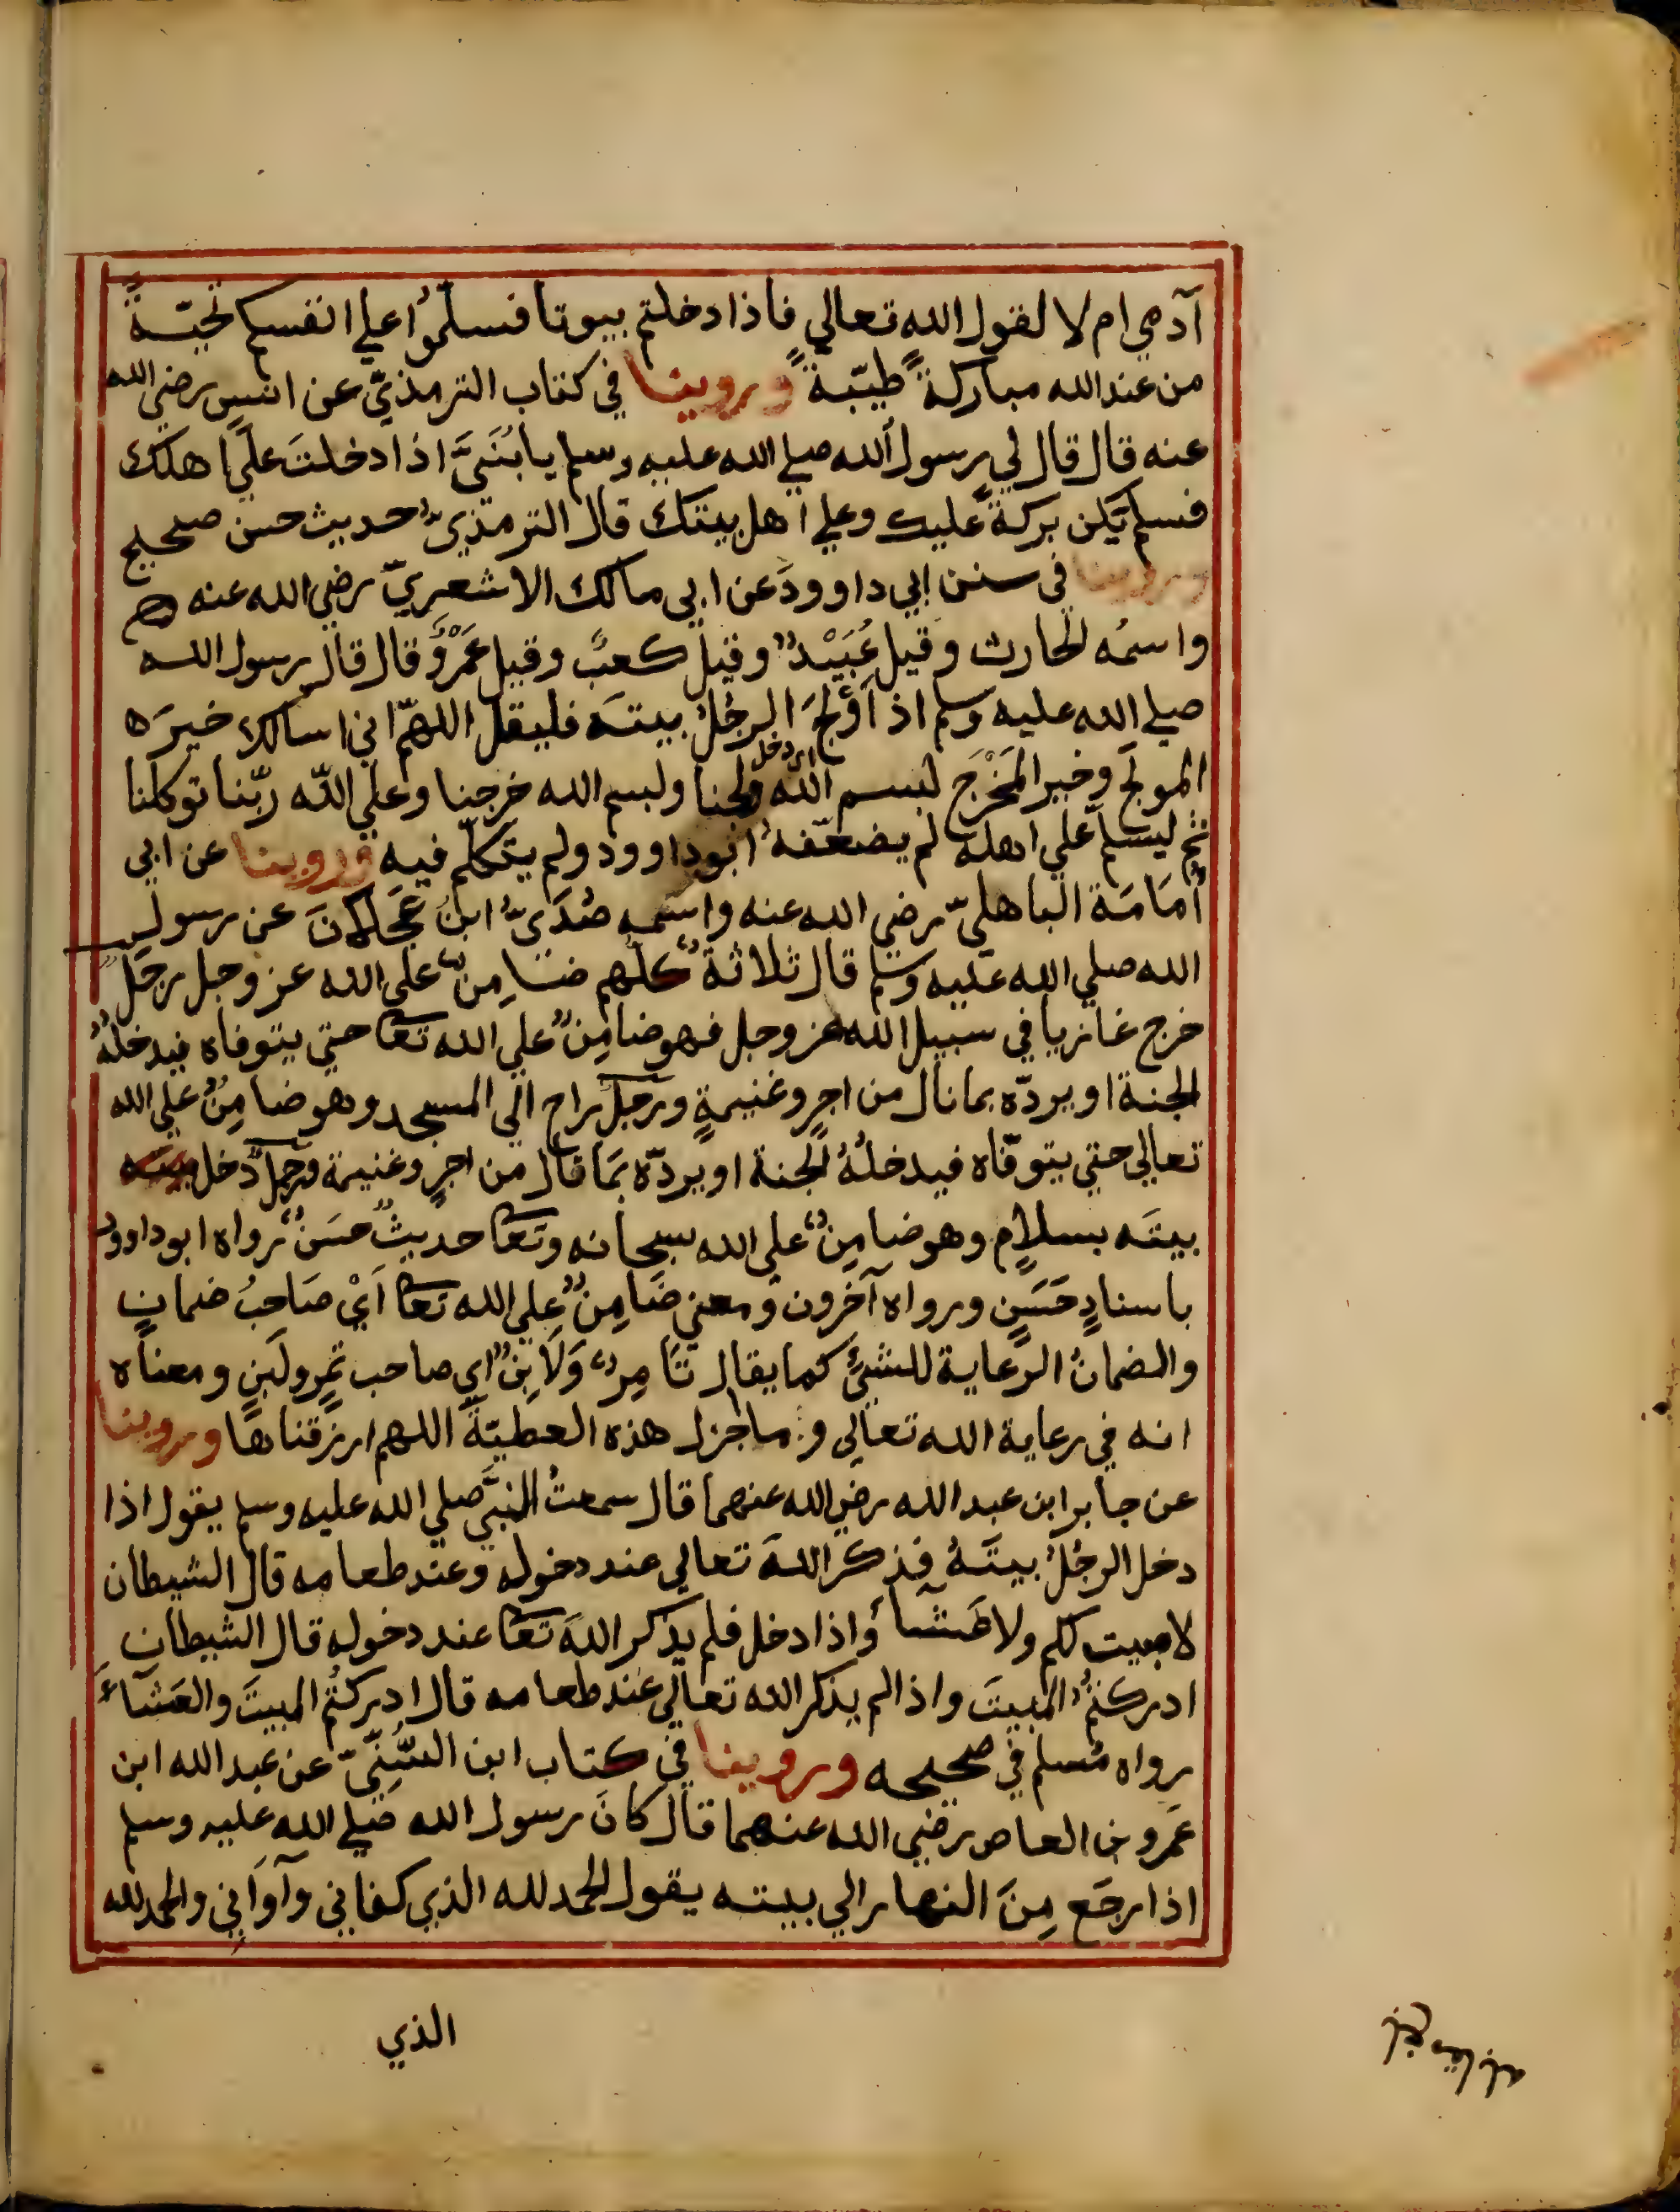 آدمي ام لا لقول الله تعالي فاذا دخلتم بيوتا فسلموُا علي انفسكم تحيّةً
من عند الله مباركةً طيّبةً وروينا في كتاب الترمذيّ عن انسٍ رضي الله
عنه قال قال لي رسول الله صلي الله عليه وسلم يا بُنَيَّ اذا دخلتَ علي اهلك
فسلم يكن بركةً عليك وعلي اهل بيتك قال الترمذيّ حديث حسن صحيح
وروينا في سنن ابي داوودَ عن ابي مالك الاشعريّ رضي الله عنه
واسمُه الحارث وقيل عُبَيْدٌ وقيل كعبٌ وقيل عَمْرٌو قال قال رسول الله
صلي الله عليه وسلم اذا وَلَجَ الرجُلُ بيتَه فليقل اللهمّ اني اسالك خيرَه
المولج وخير المَخْرَج لبسم الله ولجنا ولبسم الله خرجنا وعلي اللّه ربّنا توكلنا
اي دخل
ثم ليسلم علي اهله لم يضعّفه ابوداوود ولم يتكلّم فيه وروينا عن ابي
أُمَامَة الباهليّ رضي الله عنه واسمه صُدَيّ ابنُ عَجلانَ عن رسول
الله صلي الله عليه وسلم قال ثلاثةٌ كلُهم ضامِنٌ علي الله عز وجل رجلٌ
خرج غازيا في سبيل الله عز وجل فهو ضامِنٌ علي الله تعا حتي يتوفاه فيدخلهُ
الجنة او يردّه بما نال من اجرٍ وغنيمةٍ ورجلٌ راح الي المسجد وهو ضامِنٌ علي الله
تعالي حتي يتوفّاه فيدخلُهُ الجنة او يردّه بمَا قال من اجرٍ وغنيمة ورجلٌ دخل بيته
بيتَه بسلامٍ وهو ضامِنٌ علي الله سبحانه وتعا حديثٌ حسَنٌ رواه ابوداوود
باسنادٍ حَسَنٍ ورواه آخرون ومعني ضَامِنٌ علي الله تعا اَيْ صَاحبُ ضمانٍ
والضمانُ الرعاية للشيئ كما يقال تَامِرٌ وَلَابِنٌ اي صاحب تمرٍ ولَبنٍ ومعناه
انه في رعاية الله تعالي وما اجزل هذه العطيّةَ اللهم ارزقناها وروينا
عن جابر ابن عبد الله رضي الله عنهما قال سمعتُ النبيَّ صلي الله عليه وسلم يقول اذا
دخل الرجُلُ بيتَهُ فذكر اللهَ تعالي عند دخوله وعند طعامه قال الشيطان
لا مبيت لكم ولا عَشَآءَ واذا دخل فلم يذكر اللهَ تعا عند دخوله قال الشيطان
ادركتُمُ المبيتَ واذا لم يذكر الله تعالي عند طعامه قال ادركتُم المبيتَ والعَشَآءَ
رواه مُسلم في صحيحه وروينا في كتاب ابن السُّنِّيّ عن عبد الله ابن
عَمرو بن العاص رضي الله عنهما قال كانَ رسول الله صَلي الله عليه وسلم
اذا رجَع مِنَ النهار الي بيته يقول الحمد لله الذي كفاني وآوَاني والحمد لله
الذي